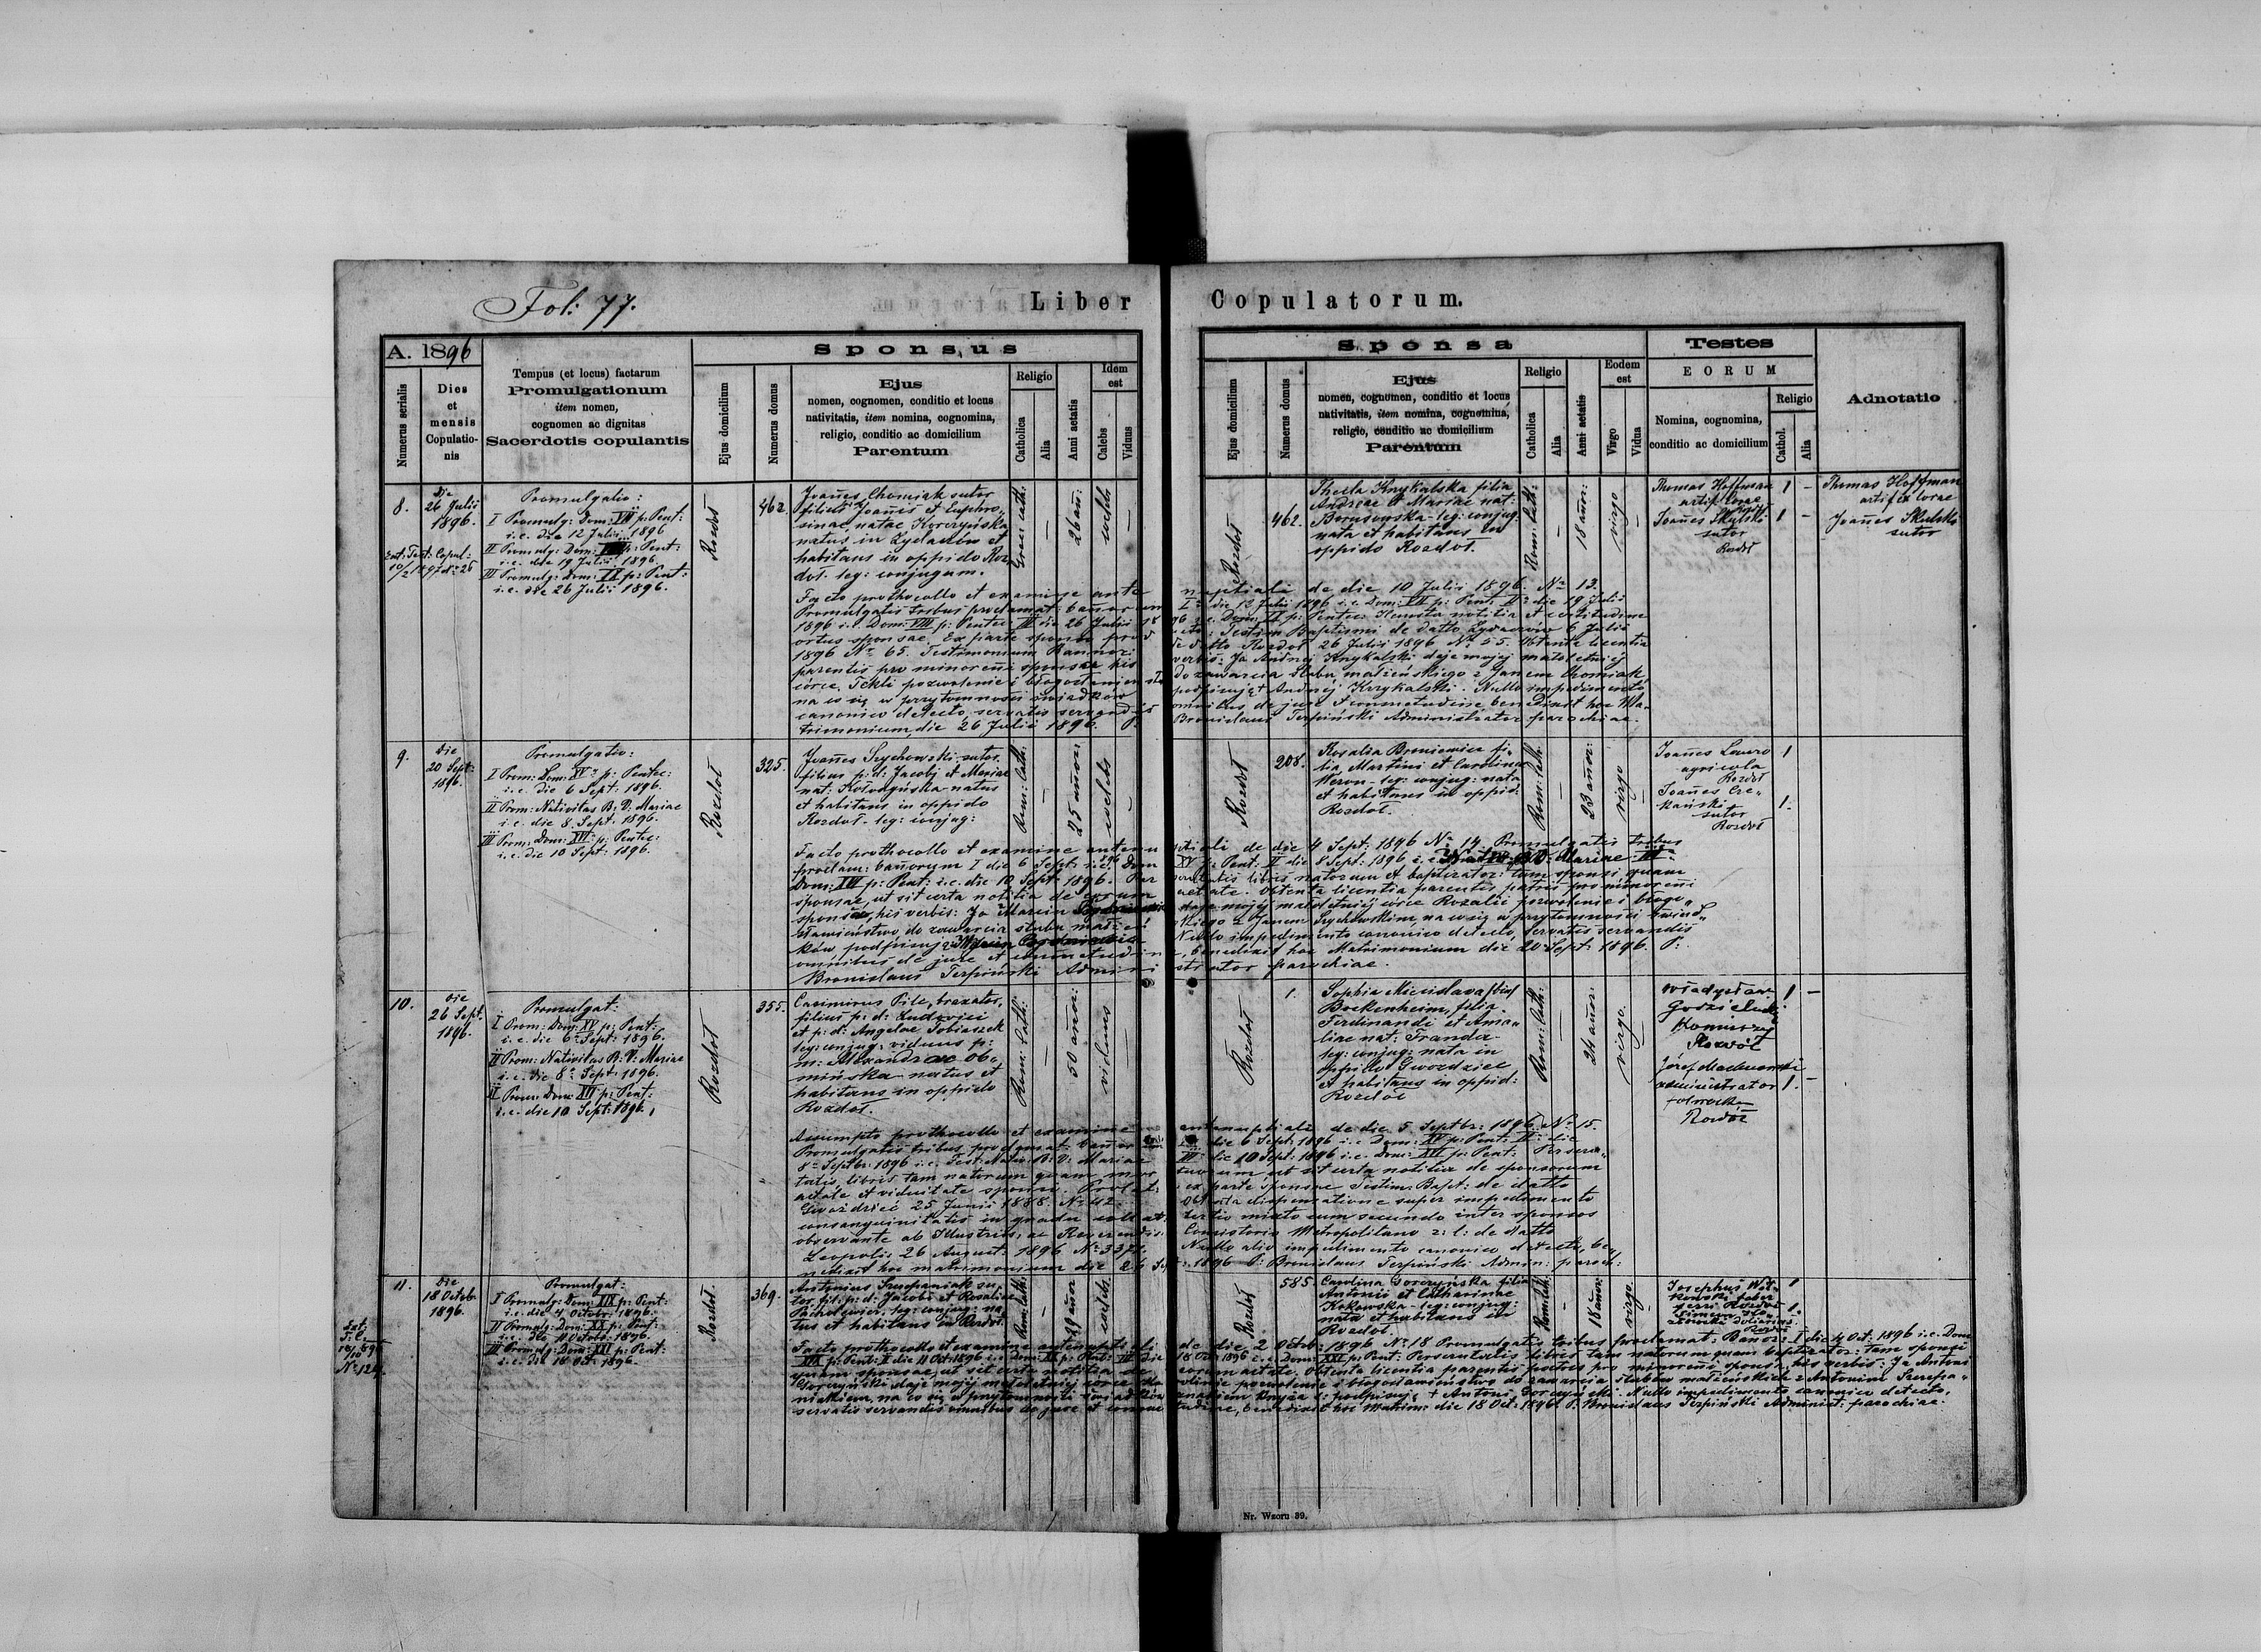 Fol: 77.
Liber Copulatorum.
A. 1896
Numerus serialis
Dies et mensis Copulatio-nis
Tempus (et locus) factarum
Promulgationum
item nomen,
cognomen ac dignitas
Sacerdotis copulantis
Sponsus
Ejus domicilium
Numerus domus
Ejus
nomen, cognomen, conditio et locus
nativitatis, item nomina, cognomina,
religio, conditio ac domicilium
Parentum
Religio
Catholica
Alia
Anni aetatis
Idem est
Caelebs
Viduus
Sponsa
Ejus domicilium
Numerus domus
Ejus
nomen, cognomen, conditio et locus
nativitatis, item nomina, cognomina,
religio, conditio ac domicilium
Parentum
Religio
Catholica
Alia
Anni aetatis
Eodem est
Virgo
Vidua
Testes
EORUM
Nomina, cognomina,
conditio ac domicilium
Religio
Cathol.
Alia
Adnotatio
8.
die
26 Julii
1896.
Promulgatio:
I Promulg: Dom: VII p: Pent:
i.e. die 12 Julii 1896
II Promulg: Dom: p: Pent:
i.e. die 19 Julii 1896.
III Promulg: Dom: IX p: Pent:
i.e. die 26 Julii 1896.
Rozdoł
462.
Joañes Chomiak sutor
filius Joañis et Euphro-
sinae natae Korczyńska
natus in Zydaczów et
habitans in oppido Roz
doł. leg: conjugum.
Graec: cath:
26 añ:
coelebs
Rozdoł
462.
Thecla Knykalska filia
Andreae et Mariae nat:
leg: conjug:
nata et habitans in
oppido Rozdoł.
Rom: Cath:
18 añor:
virgo
Thomas Hoffman
artifex lorae
Joañes Skulski
sutor
Rozdoł
1 -
1 -
Thomas Hoffman
artifex lorae
Joañes Skulski
sutor
Facto prothocollo et examine ante nuptiali de die 10 Julii 1896 No 13.
Promulgatis tribus proclamat: bañorum I die 12 Julii 1896 i.e. Dom: VII p: Pent: II die 19 Julii
1896 i.e. Dom: VIII p: Pentec: III die 26 Julii 1896 i.e. Dom: IX p: Pentec:
ortus sponsae. Ex parte sponsi Testim: Baptismi de datto Zydaczów 6 Julii
1896 No 65. Testimonium Bannor: de datto Rozdoł 26 Julii 1896 No 55. Obtenta licentia
parentis pro minoreñi sponsae his verbis: Ja Andrzej Knykalski daję mojej małoletniej
córce Tekli pozwolenie i błogosławieństwo do zawarcia ślubu małżeńskiego z Janem Chomiak
na co się w przytomności świadków podpisuję Andrzej Knykalski. Nullo impedimento
canonico detecto servatis servandis omnibus de jure et consuetudine benedixit hoc Ma-
trimonium, die 26 Julii 1896. P. Bronislaus Terpiński Administrator parochiae.
9.
die
20 Sept:
1896.
Promulgatio:
I Prom: Dom: XV p: Pentec:
i.e. die 6 Sept: 1896.
II Prom: Nativitas B: V: Mariae
i.e. die 8 Sept: 1896.
III Prom: Dom: XVI p: Pentec:
i.e. die 10 Sept: 1896.
Rozdoł
325.
Joañes Szychowski sutor
filius p: d: Jacobi et Mariae
nat: natus
et habitans in oppido
Rozdoł. leg: conjug:
Rom: Cath:
25 añor:
coelebs
Rozdoł
208.
Rosalia Broniewicz fi-
lia Martini et Carolinae
leg: conjug: nata
et habitans in oppid:
Rozdoł.
Rom: Cath:
23 añor:
virgo
Joañes
agricola
Rozdoł
Joañes Cze-
kański
sutor
Rozdoł
1
1.
Facto prothocollo et examine antenuptiali de die 4 Sept: 1896 No 14. Promulgatis tribus
proclam: bañorum I die 6 Sept: i.e. Dom XV p: Pent. II die 8 Sept: 1896 i.e. Mariae III
Dom: XVI p: Pent: i.e. die 10 Sept: 1896. Perscrutatis libris natorum et baptizator: tam sponsi quam
sponsae, ut sit certa notitia de eorum aetate. Obtenta licentia parentis patris pro minoreñi
sponsae, his verbis: Ja Marcin daję mojej małoletniej córce Rozalii pozwolenie i błogo-
sławieństwo do zawarcia ślubu z Janem Szychowskim na co się w przytomności świad-
ków podpisuję Marcin Nullo impedimento canonico detecto, servatis servandis
omnibus de jure et consuetudine, benedixi hoc Matrimonium die 20 Sept: 1896. P:
Bronislaus Terpiński Administrator parochiae.
10.
die
26 Sept.
1896.
Promulgat:
I Prom: Dom: XV p: Pent:
i.e. die 6 Sept: 1896.
II Prom: Nativitas B: V: Mariae
i.e. die 8 Sept: 1896.
III Prom: Dom: XVI p: Pent:
i.e. die 10 Sept: 1896.
Rozdoł
355.
Casimirus Pilc, braxator,
filius p: d: Ludovici
et p: d: Angelae Tobiaszek
leg: conjug: viduus p:
m: Alexandrae Ob-
mińska natus et
habitans in oppido
Rozdoł.
Rom: Cath:
50 añor:
viduus
Rozdoł
1.
Sophia
Bockenheim, filia
Ferdinandi et Ama-
liae nat:
leg: conjug: nata in
oppido Gwozdziec
et habitans in oppid:
Rozdoł
Rom: Cath:
24 añor:
virgo.
Władysław
Rozdół
Józef
administrator
Rozdół
1 -
1. -
Assumpto prothocollo et examine antenuptiali de die 5 Septbr: 1896 No 15.
Promulgatis tribus proclamat: bañor: I die 6 Sept: 1896 i.e. Dom: XV p: Pent: II die
8 Septbr: 1896 i.e. Fest: Nativ: B: V: Mariae III die 10 Sept: 1896 i.e. Dom: XVI p: Pent: Perscru-
tatis libris tam natorum quam mortuorum ut sit certa notitia de sponsorum
aetate et viduitate sponsi. ex parte sponsae Testim: Bapt: de datto
Gwozdziec 25 Junii 1888 No 42. Obtenta dispensatione super impedimento
consanguinitatis in gradu tertio mixto cum secundo inter sponsos
observante ab Illustriss: ac Reverendiss: Consistorio Metropolitano r: l: de datto
Leopoli: 26 August: 1896 Nullo alio impedimento canonico detecto, be-
nedixit hoc matrimonium die 26 Sept: 1896 P: Bronislaus Terpiński Admin: paroch:
11.
Die
18 Octobr
1896.
Promulgat:
I Promulg: Dom: XIX p: Pent:
i.e. die 4 Octobr: 1896.
II Promulg: Dom: XX p: Pent:
i.e. die 11 Octobr: 1896.
III Promulg: Dom: XXI p: Pent:
i.e. die 18 Oct: 1896.
Rozdoł
369.
Antonius Szczepaniak su-
tor fil: p: d: Jacobi et Rosaliae
leg: conjug: na-
tus et habitans in Rozdoł.
Rom: Cath:
29 añor
coelebs
Rozdoł
585.
Carolina Gorczyńska filia
Antonii et Catharinae
Kokowska leg: conjug:
nata et habitans in
Rozdoł.
Rom: Cath:
18 añor:
virgo.
Josephus Wit-
kowski faber
ferri Rozdoł
Rozdoł
1
1.
Facto prothocollo et examine antenuptiali de die 2 Octobr: 1896 No 18 Promulgatis tribus proclamat: Banor: I die 4 Oct: 1896 i.e. Dom:
XIX p: Pent: II die 11 Oct: 1896 i.e. Dom: XX p: Pent: III die 18 Oct: 1896 i.e. Dom: XXI p: Pent: Perscrutatis libris tam natorum quam baptizator: tam sponsi
quam sponsae, ut sit certa notitia de eorum aetate. Obtenta licentia parentis patris pro minoreñi sponsa, his verbis: Ja Antoni
Gorczyński daję mojej małoletniej córce Karolinie pozwolenie i błogosławieństwo do zawarcia ślubów małżeńskich z Antonim Szczepa-
niakiem, na co się w przytomności świadków znakiem krzyża podpisuję + Antoni Gorczyński. Nullo impedimento canonico detecto,
servatis servandis omnibus de jure et consuetudine, benedixit hoc Matrim: die 18 Oct: 1896. P. Bronislaus Terpiński Administ: parochiae.
Nr. Wzoru 39.